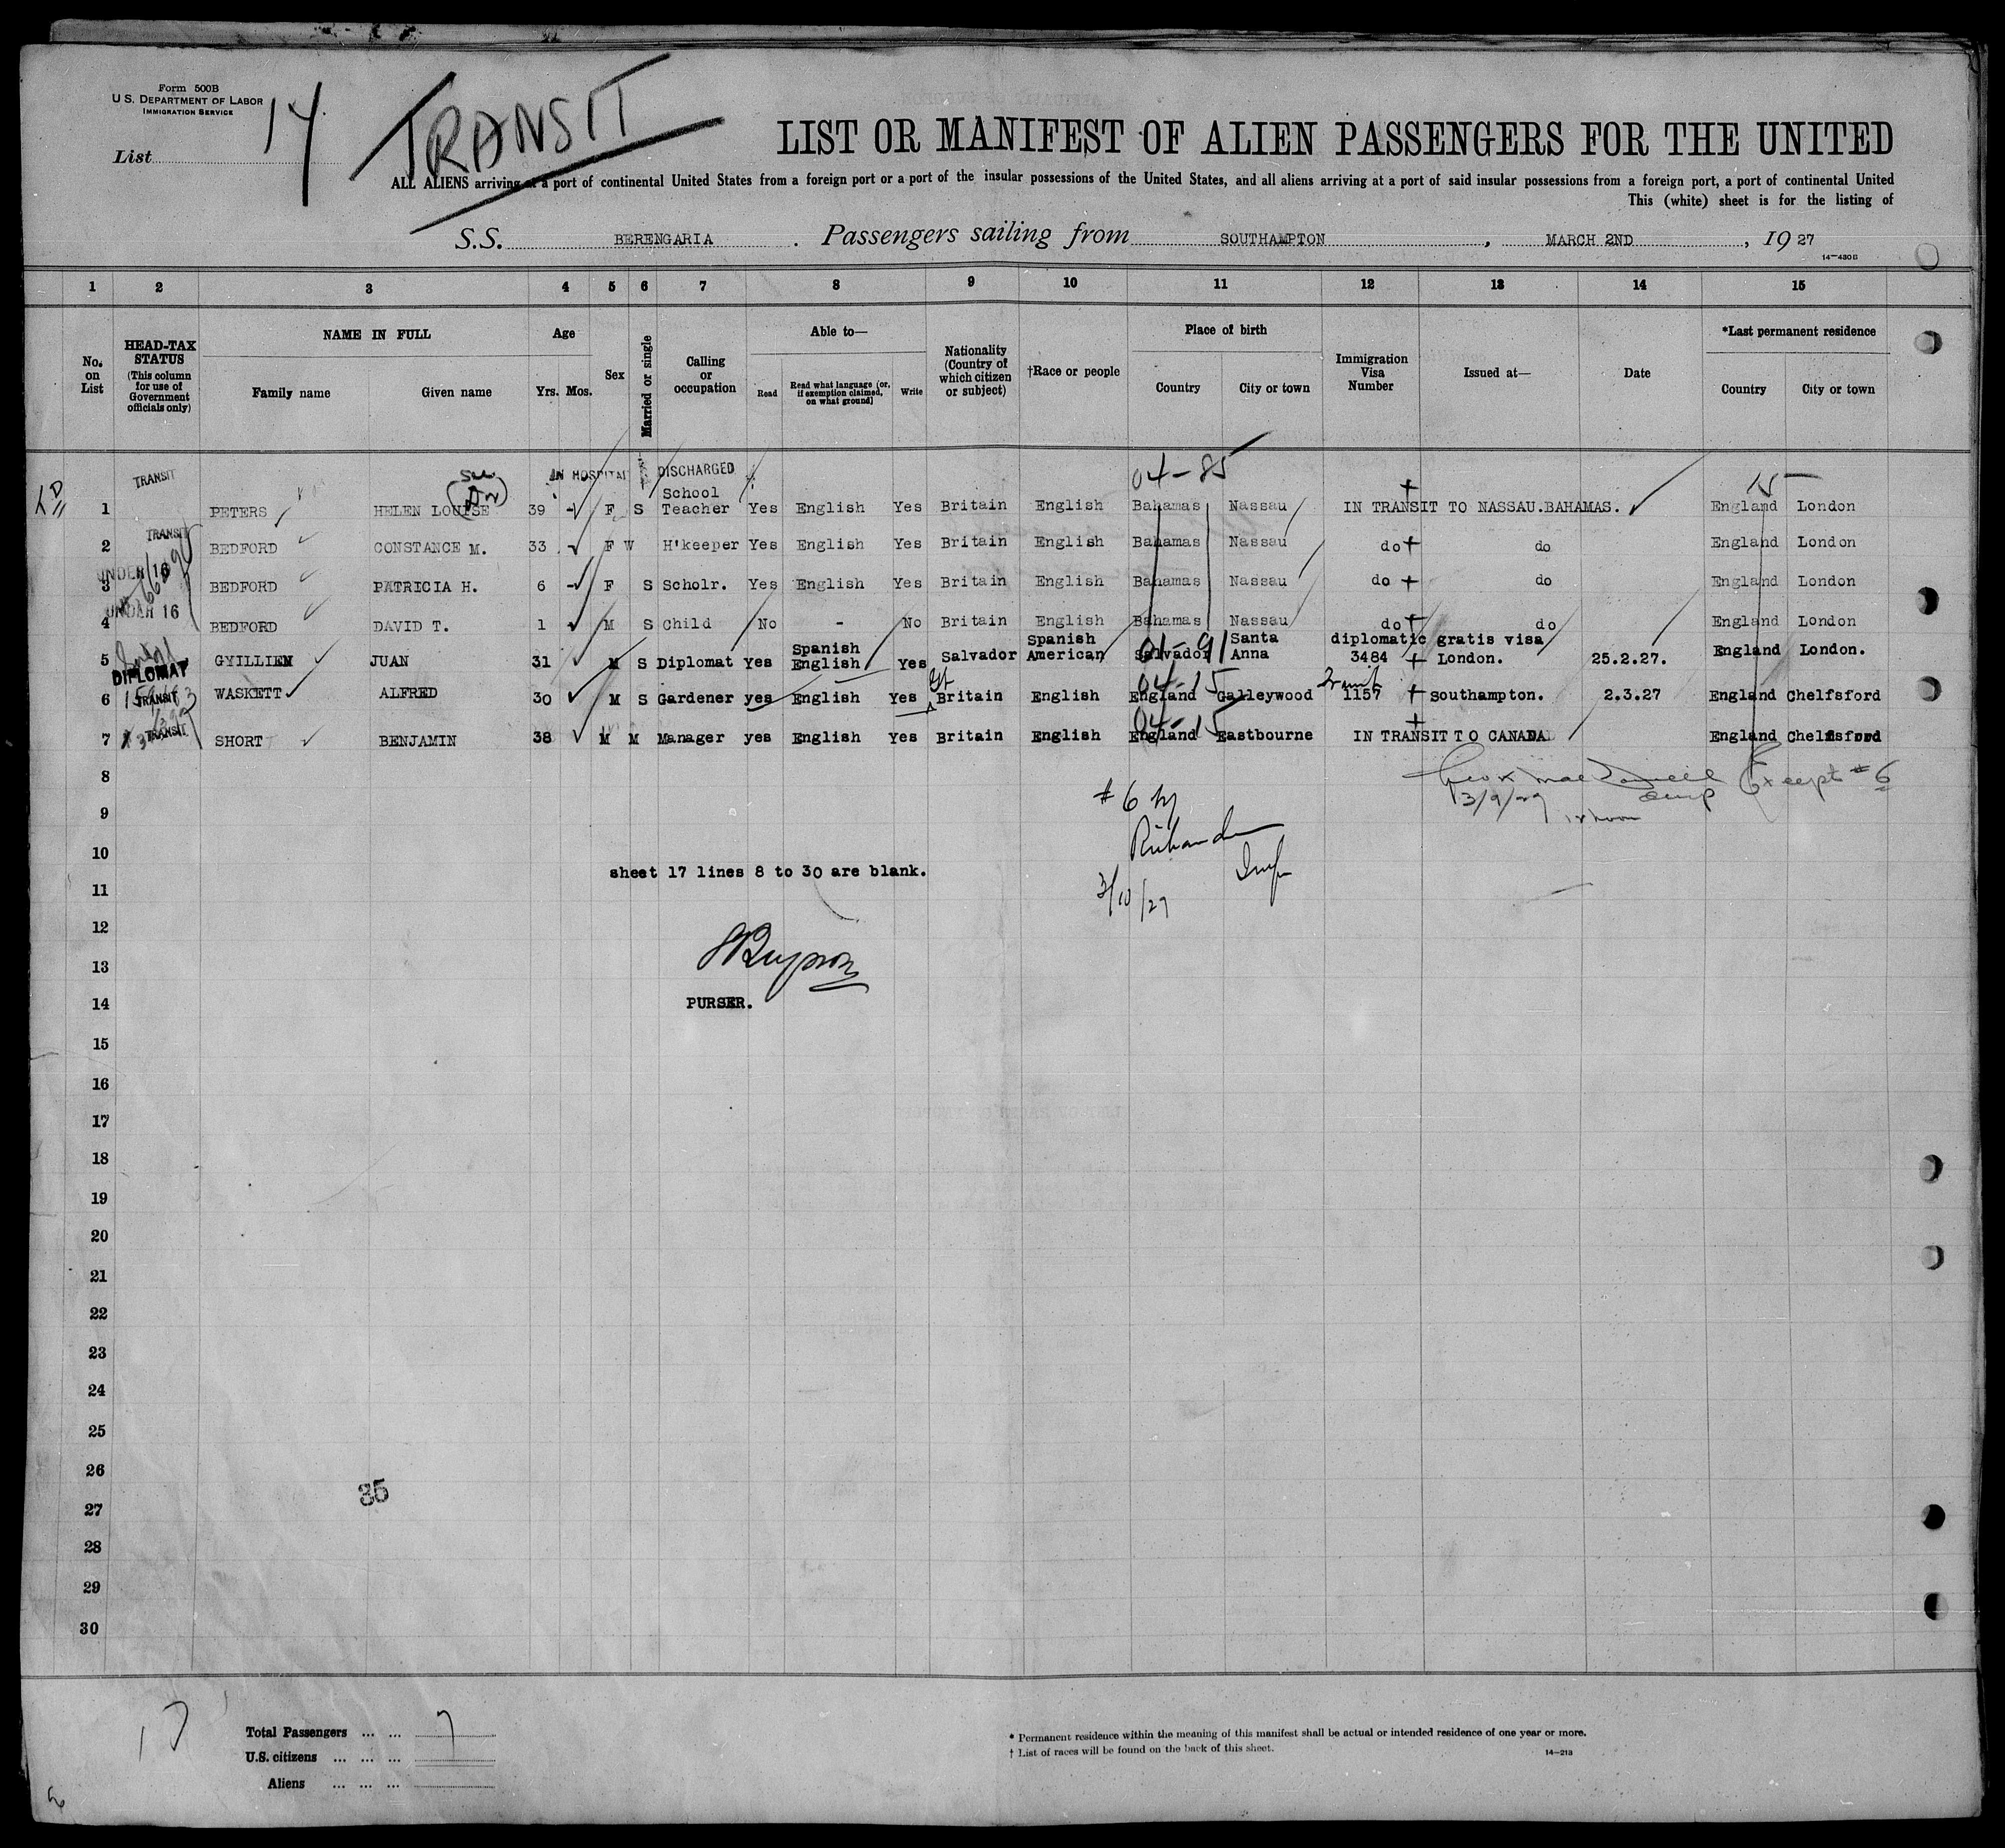 Form 500B
U.S. DEPARTMENT OF LABOR
IMMIGRATION SERVICE
List 14
TRANSIT
LIST OR MANIFEST OF ALIEN PASSENGERS FOR THE UNITED
ALL ALIENS arriving at a port of continental United States from a foreign port or a port of the insular possessions of the United States, and all aliens arriving at a port of said insular possessions from a foreign port, a port of continental United
This (white) sheet is for the listing of
S.S. BERENGARIA. Passengers sailing from SOUTHAMPTON, MARCH 2ND, 1927
14-430B
1 2 3 4 5 6 7 8 9 10 11 12 13 14 15
No. on List
HEAD-TAX STATUS (This column for use of Government officials only)
NAME IN FULL
Family name Given name
Age
Yrs. Mos.
Sex
Married or single
Calling or occupation
Able to—
Read Read what language (or, if exemption claimed, on what ground) Write
Nationality (Country of which citizen or subject)
†Race or people
Place of birth
Country City or town
Immigration Visa Number
Issued at—
Date
*Last permanent residence
Country City or town
TRANSIT IN HOSPITAL DISCHARGED 04-85 15
1 PETERS HELEN LOUISE 39 F S School Teacher Yes English Yes Britain English Bahamas Nassau IN TRANSIT TO NASSAU.BAHAMAS. England London
TRANSIT
2 BEDFORD CONSTANCE M. 33 F W H'keeper Yes English Yes Britain English Bahamas Nassau do do England London
UNDER 16
3 BEDFORD PATRICIA H. 6 F S Scholr. Yes English Yes Britain English Bahamas Nassau do do England London
UNDER 16
4 BEDFORD DAVID T. 1 M S Child No - No Britain English Bahamas Nassau do do England London
5 GYILLIEM JUAN 31 M S Diplomat Yes Spanish English Yes Salvador Spanish American Salvador Santa Anna diplomatic gratis visa 3484 London. 25.2.27. England London.
DIPLOMAT 01-91
TRANSIT 04-15
6 WASKETT ALFRED 30 M S Gardener yes English Yes Britain English England Galleywood 1157 Southampton. 2.3.27 England Chelfsford
TRANSIT 04-15
7 SHORT BENJAMIN 38 M M Manager yes English Yes Britain English England Eastbourne IN TRANSIT TO CANADA England Chelmsford
8
Except #6
#6 by
9
12 noon
10
sheet 17 lines 8 to 30 are blank.
11
3/10/27
12
13
14
PURSER.
15
16
17
18
19
20
21
22
23
24
25
26
35
27
28
29
30
17
Total Passengers ... ... 7
U.S. citizens ... ... ...
Aliens ... ... ...
* Permanent residence within the meaning of this manifest shall be actual or intended residence of one year or more.
† List of races will be found on the back of this sheet.
14-213